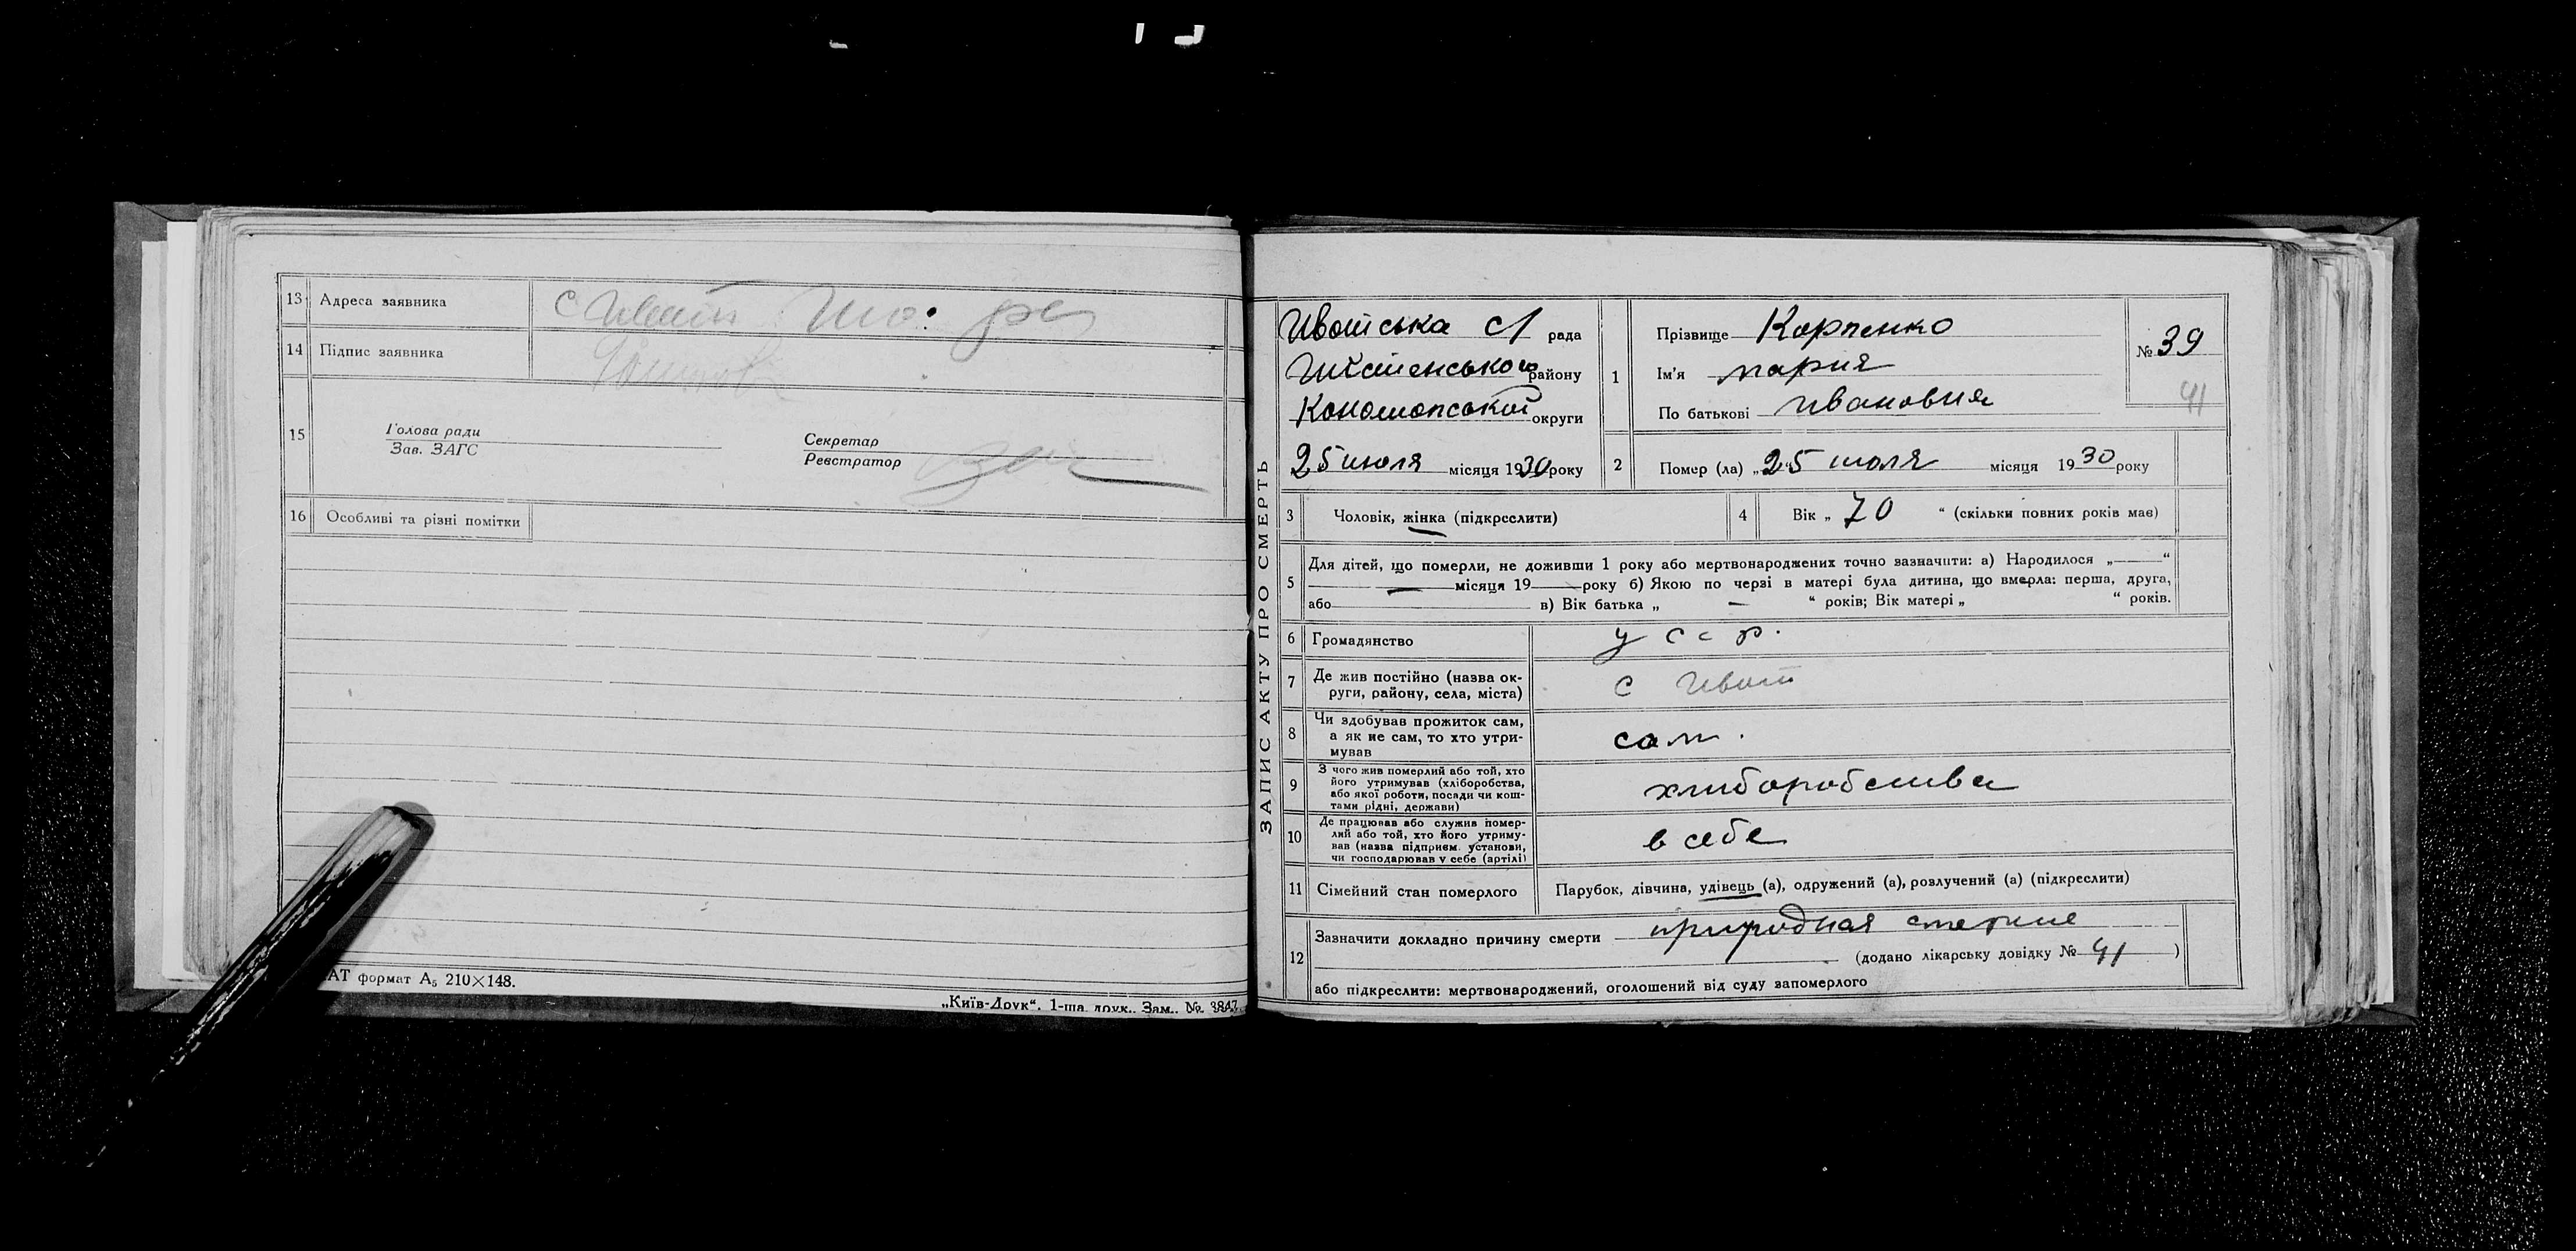 13 Адреса заявника с Ивот
14 Підпис заявника
15 Голова ради
Зав. ЗАГС
Секретар
Реєстратор
16 Особливі та різні помітки
АТ формат А₅ 210×148.
„Київ-Друк“. 1-ша друк.. Зам.. № 3847
ЗАПИС АКТУ ПРО СМЕРТЬ
Ивотська с/ рада
району
Конотопської округи
25 июля місяця 1930 року
1 Прізвище Карпенко
Ім'я мария
По батькові ивановия
№ 39
41
2 Помер (ла) „25“ июля місяця 1930 року
3 Чоловік, жінка (підкреслити)
4 Вік „ 70 “ (скільки повних років має)
5 Для дітей, що померли, не доживши 1 року або мертвонароджених точно зазначити: а) Народилося „——“
— місяця 19—— року б) Якою по черзі в матері була дитина, що вмерла: перша, друга,
або в) Вік батька „ — “ років; Вік матері „ “ років.
6 Громадянство у с с р.
7 Де жив постійно (назва ок-
руги, району, села, міста) с Ивот
8 Чи здобував прожиток сам,
а як не сам, то хто утри-
мував сам.
9 З чого жив померлий або той, хто
його утримував (хліборобства,
або якої роботи, посади чи кош-
тами рідні, держави) хлиборобства
10 Де працював або служив помер-
лий або той, хто його утриму-
вав (назва підприєм. установи,
чи господарював у себе (артілі) в себе
11 Сімейний стан померлого Парубок, дівчина, удівець (а), одружений (а), розлучений (а) (підкреслити)
12 Зазначити докладно причину смерти природная
(додано лікарську довідку № 41 )
або підкреслити: мертвонароджений, оголошений від суду запомерлого